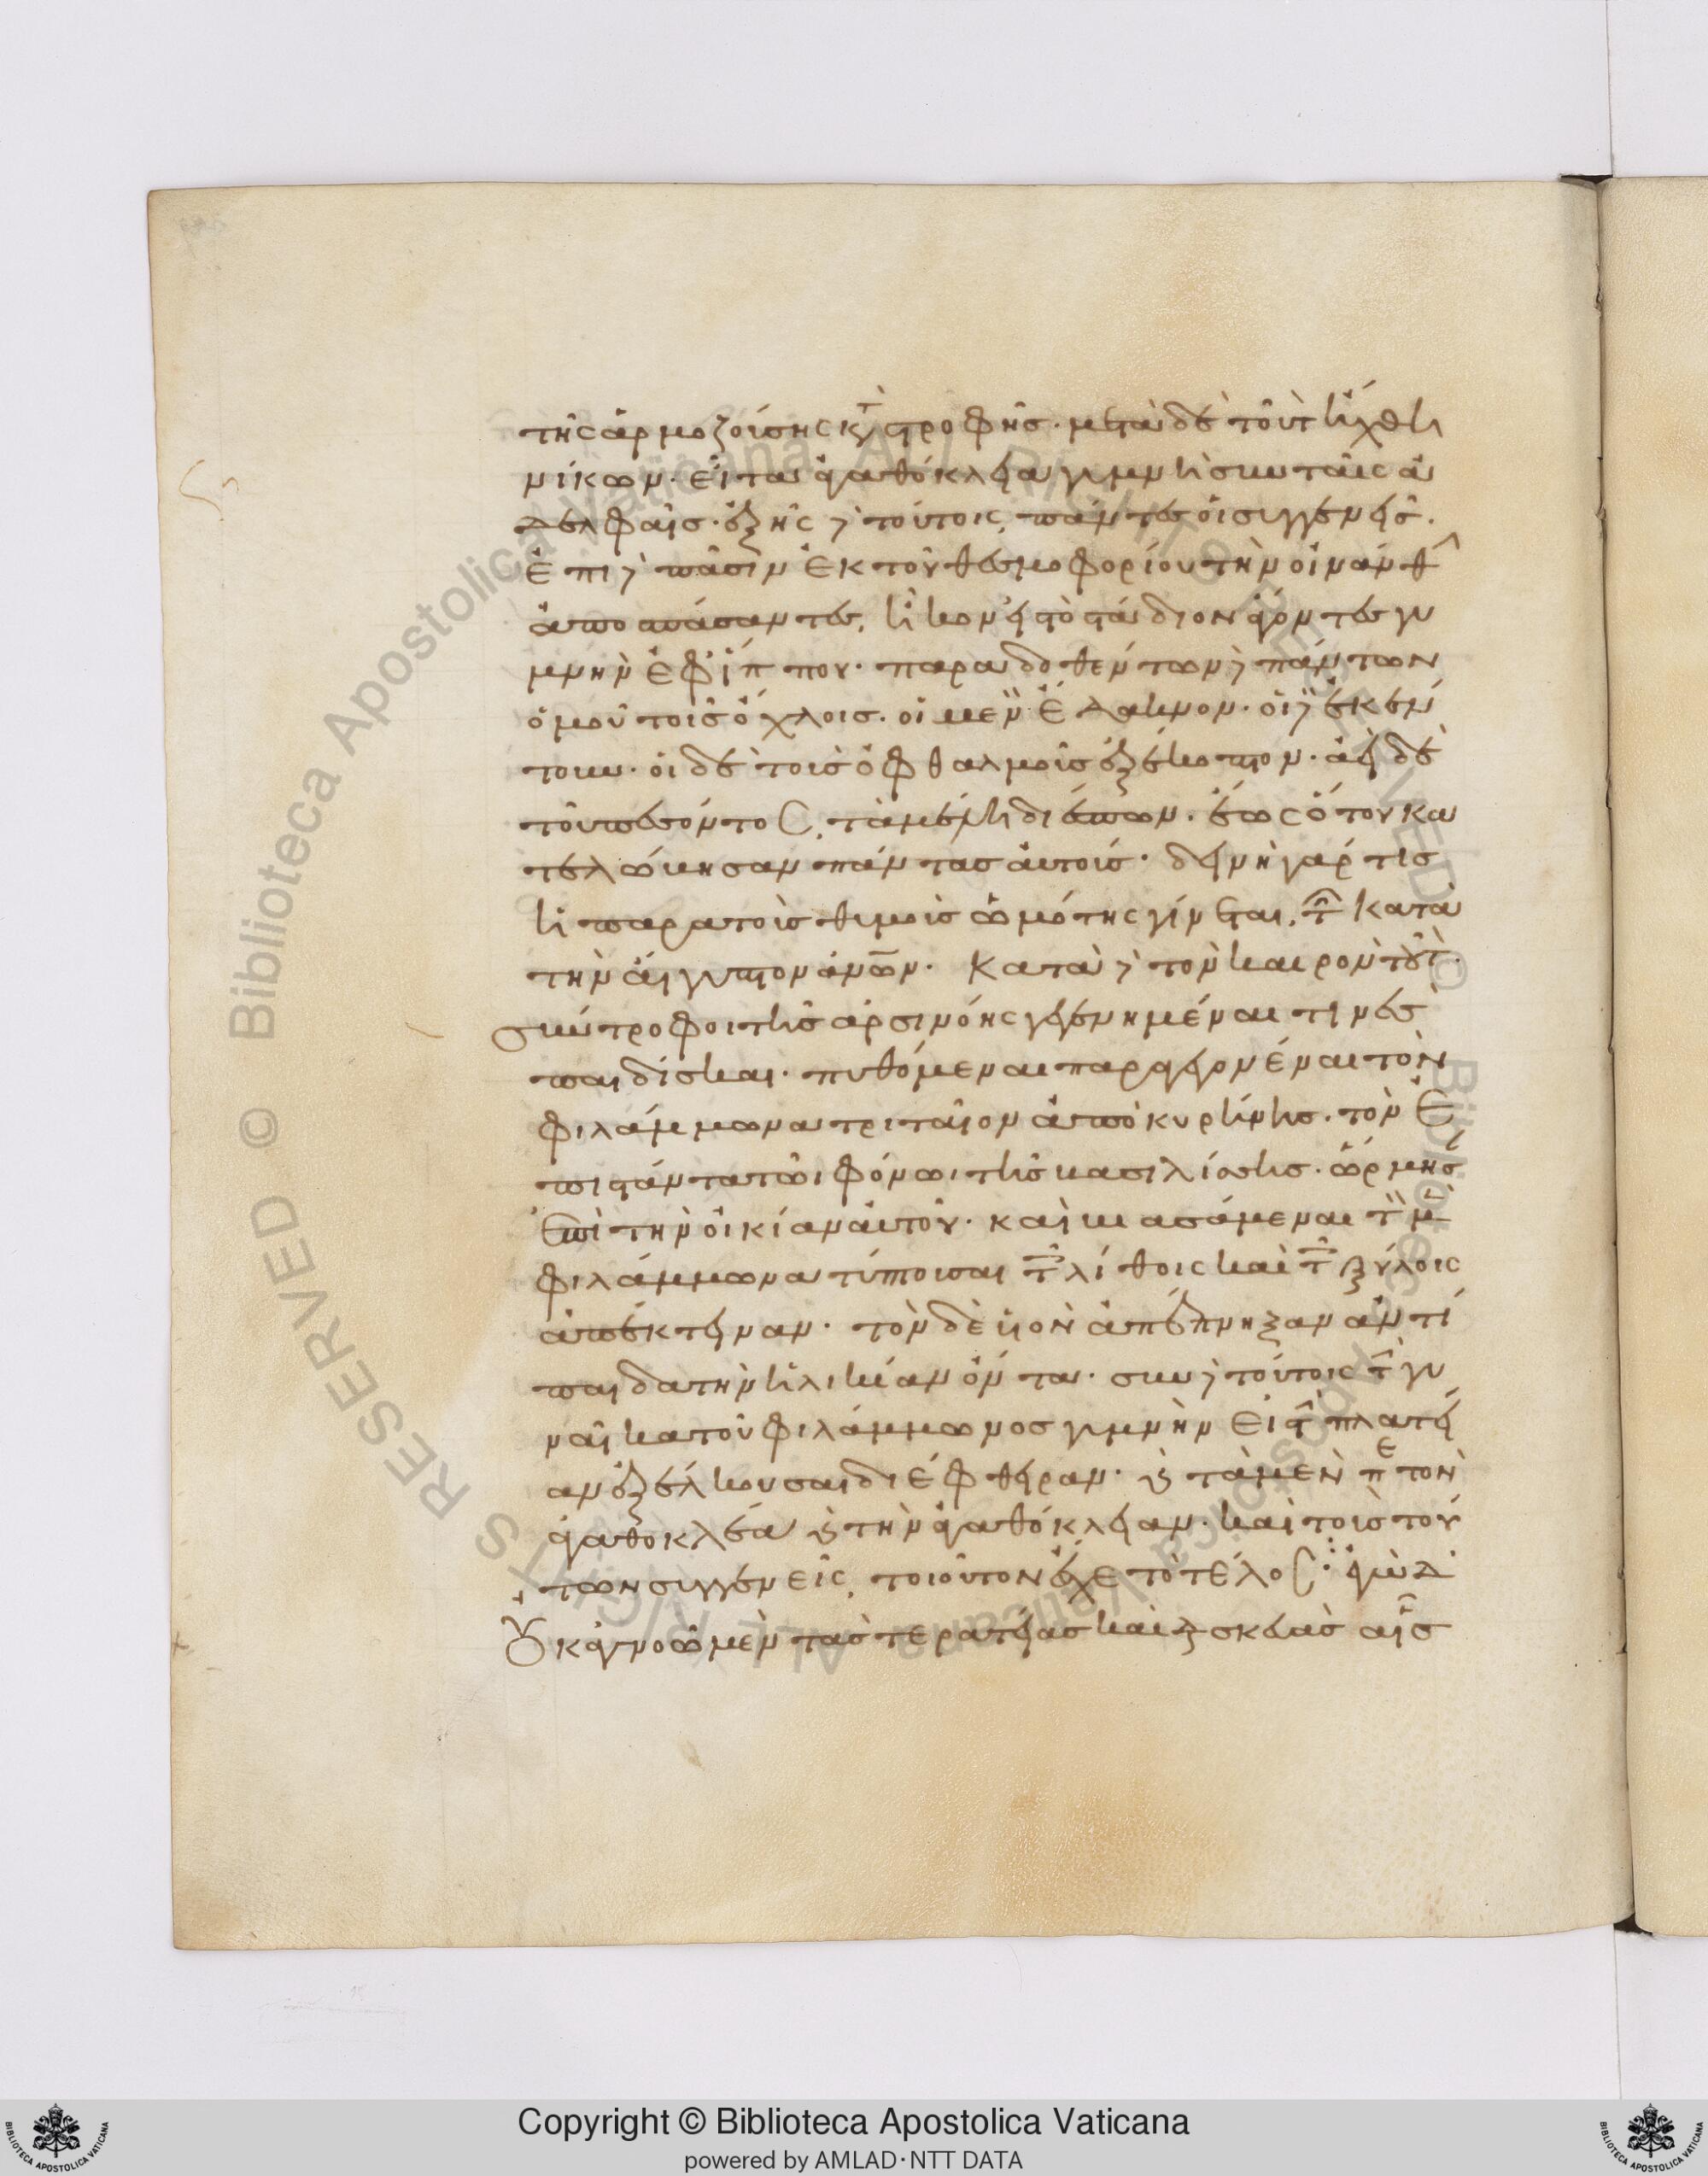 τῆς ἁρμοζούσης κ̀τ στροφῆς· μετὰ δὲ τοῦτ ἤχθη
νίκων· εἶτα ἀγαθόκλεια γυμνὴ σὺν ταῖς ἀ
δελφαῖς· ἑξῆς δὲ τούτοις, πάντες οἱ συγγενεῖς.
ἐπὶ δὲ πᾶσιν ἐκ τοῦ θεσμοφορίου τὴν οἰνάνθ
ἀποσπάσαντες, ἧκον εἰς τὸ στάδιον ἄγοντες γυ
μνὴν ἐφ ἵππου· παραδοθέντων δὲ πάντων
ὁμοῦ τοῖς ὄχλοις. οἱ μὲν ἔδακνον· οἱ δ ἐκέν
τουν· οἱ δὲ τοὺς ὀφθαλμοὺς ἐξέκοπτον· ἀεὶ δὲ
τοῦ πεσόντος, τὰ μέλη διέσπων. ἕως ὅτου κα
τελώβησαν πάντας αὐτούς· δεινὴ γάρ τις
ἡ παρὰ τοὺς θυμοὺς ὠμότης γίνεται, τ̑ κατὰ
τὴν αἴγυπτον ἀν̅ω̅ν· Κατὰ δὲ τὸν καιρὸν τοῦτ
σύντροφοι τῆς ἀρσινόης γεγενημέναι τινὲς
παιδίσκαι· πυθόμεναι παραγεγονέναι τὸν
φιλάμμωνα τριταῖον ἀπὸ κυρήνης. τὸν ἐ
πιστάντα τῶι φόνωι τῆς βασιλίσσης. ὥρμησ
ἐπὶ τὴν οἰκίαν αὐτοῦ· καὶ βιασάμεναι τ μ
φιλάμμωνα τύπουσαι τ̑ λίθοις καὶ τ̑ ξύλοις
ἀπέκτειναν· τὸν δὲ υἱὸν ἀπέπνηξαν ἀντί
παιδα τὴν ἡλικίαν ὄντα· σὺν δὲ τούτοις τ̑ γυ
ναῖκα τοῦ φιλάμμωνος γυμνὴν εἰς τ̑ πλατεῖ
αν ἐξέλκουσαι διέφθειραν· καὶ τὰ μὲν πε τὸν
ἀγαθοκλέα καὶ τὴν ἀγαθόκλειαν· καὶ τοὺς τού
των συγγενεῖς, τοιοῦτον ἔσχε τὸ τέλος: ἐγὼ δ
Οὐκ ἀγνοῶ μὲν τὰς τερατείας καὶ διασκευὰς αἷς